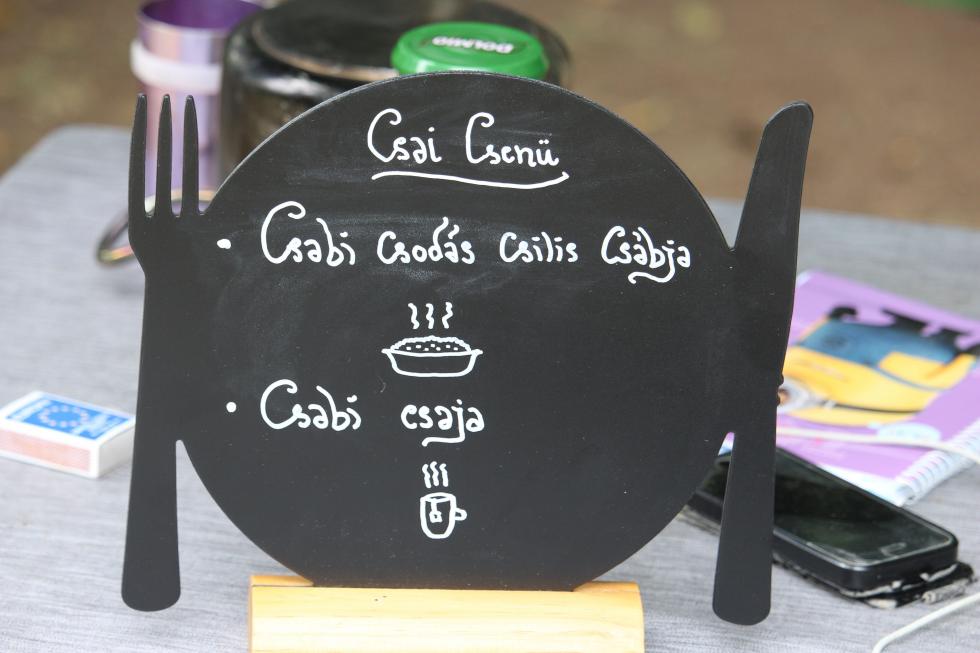 DOLMIO
Csai Csenü
• Csabi csodás csilis csábja
• Csabi csaja